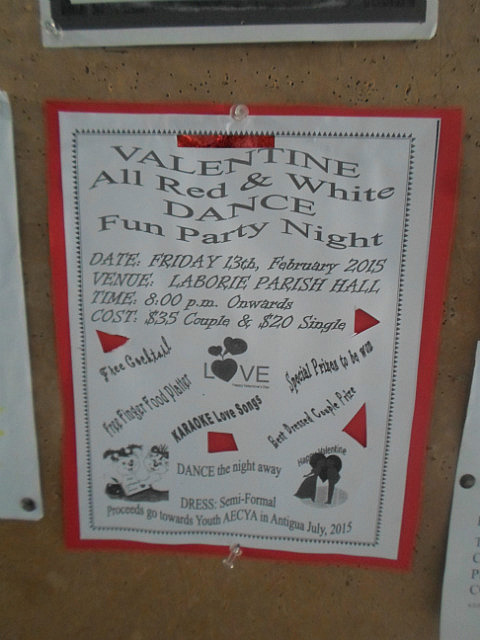 VALENTINE
All Red & White
DANCE
Fun Party Night
DATE: FRIDAY 13th, February 2015
VENUE: LABORIE PARISH HALL
TIME: 8:00 p.m. Onwards
COST: $35 Couple & $20 Single
Free Cocktail
LOVE
Happy Valentine's Day
Special Prizes to be won
Free Finger Food Platter
KARAOKE Love Songs
Best Dressed Couple Prize
DANCE the night away
Happy Valentine
DRESS: Semi-Formal
Proceeds go towards Youth AECYA in Antigua July, 2015